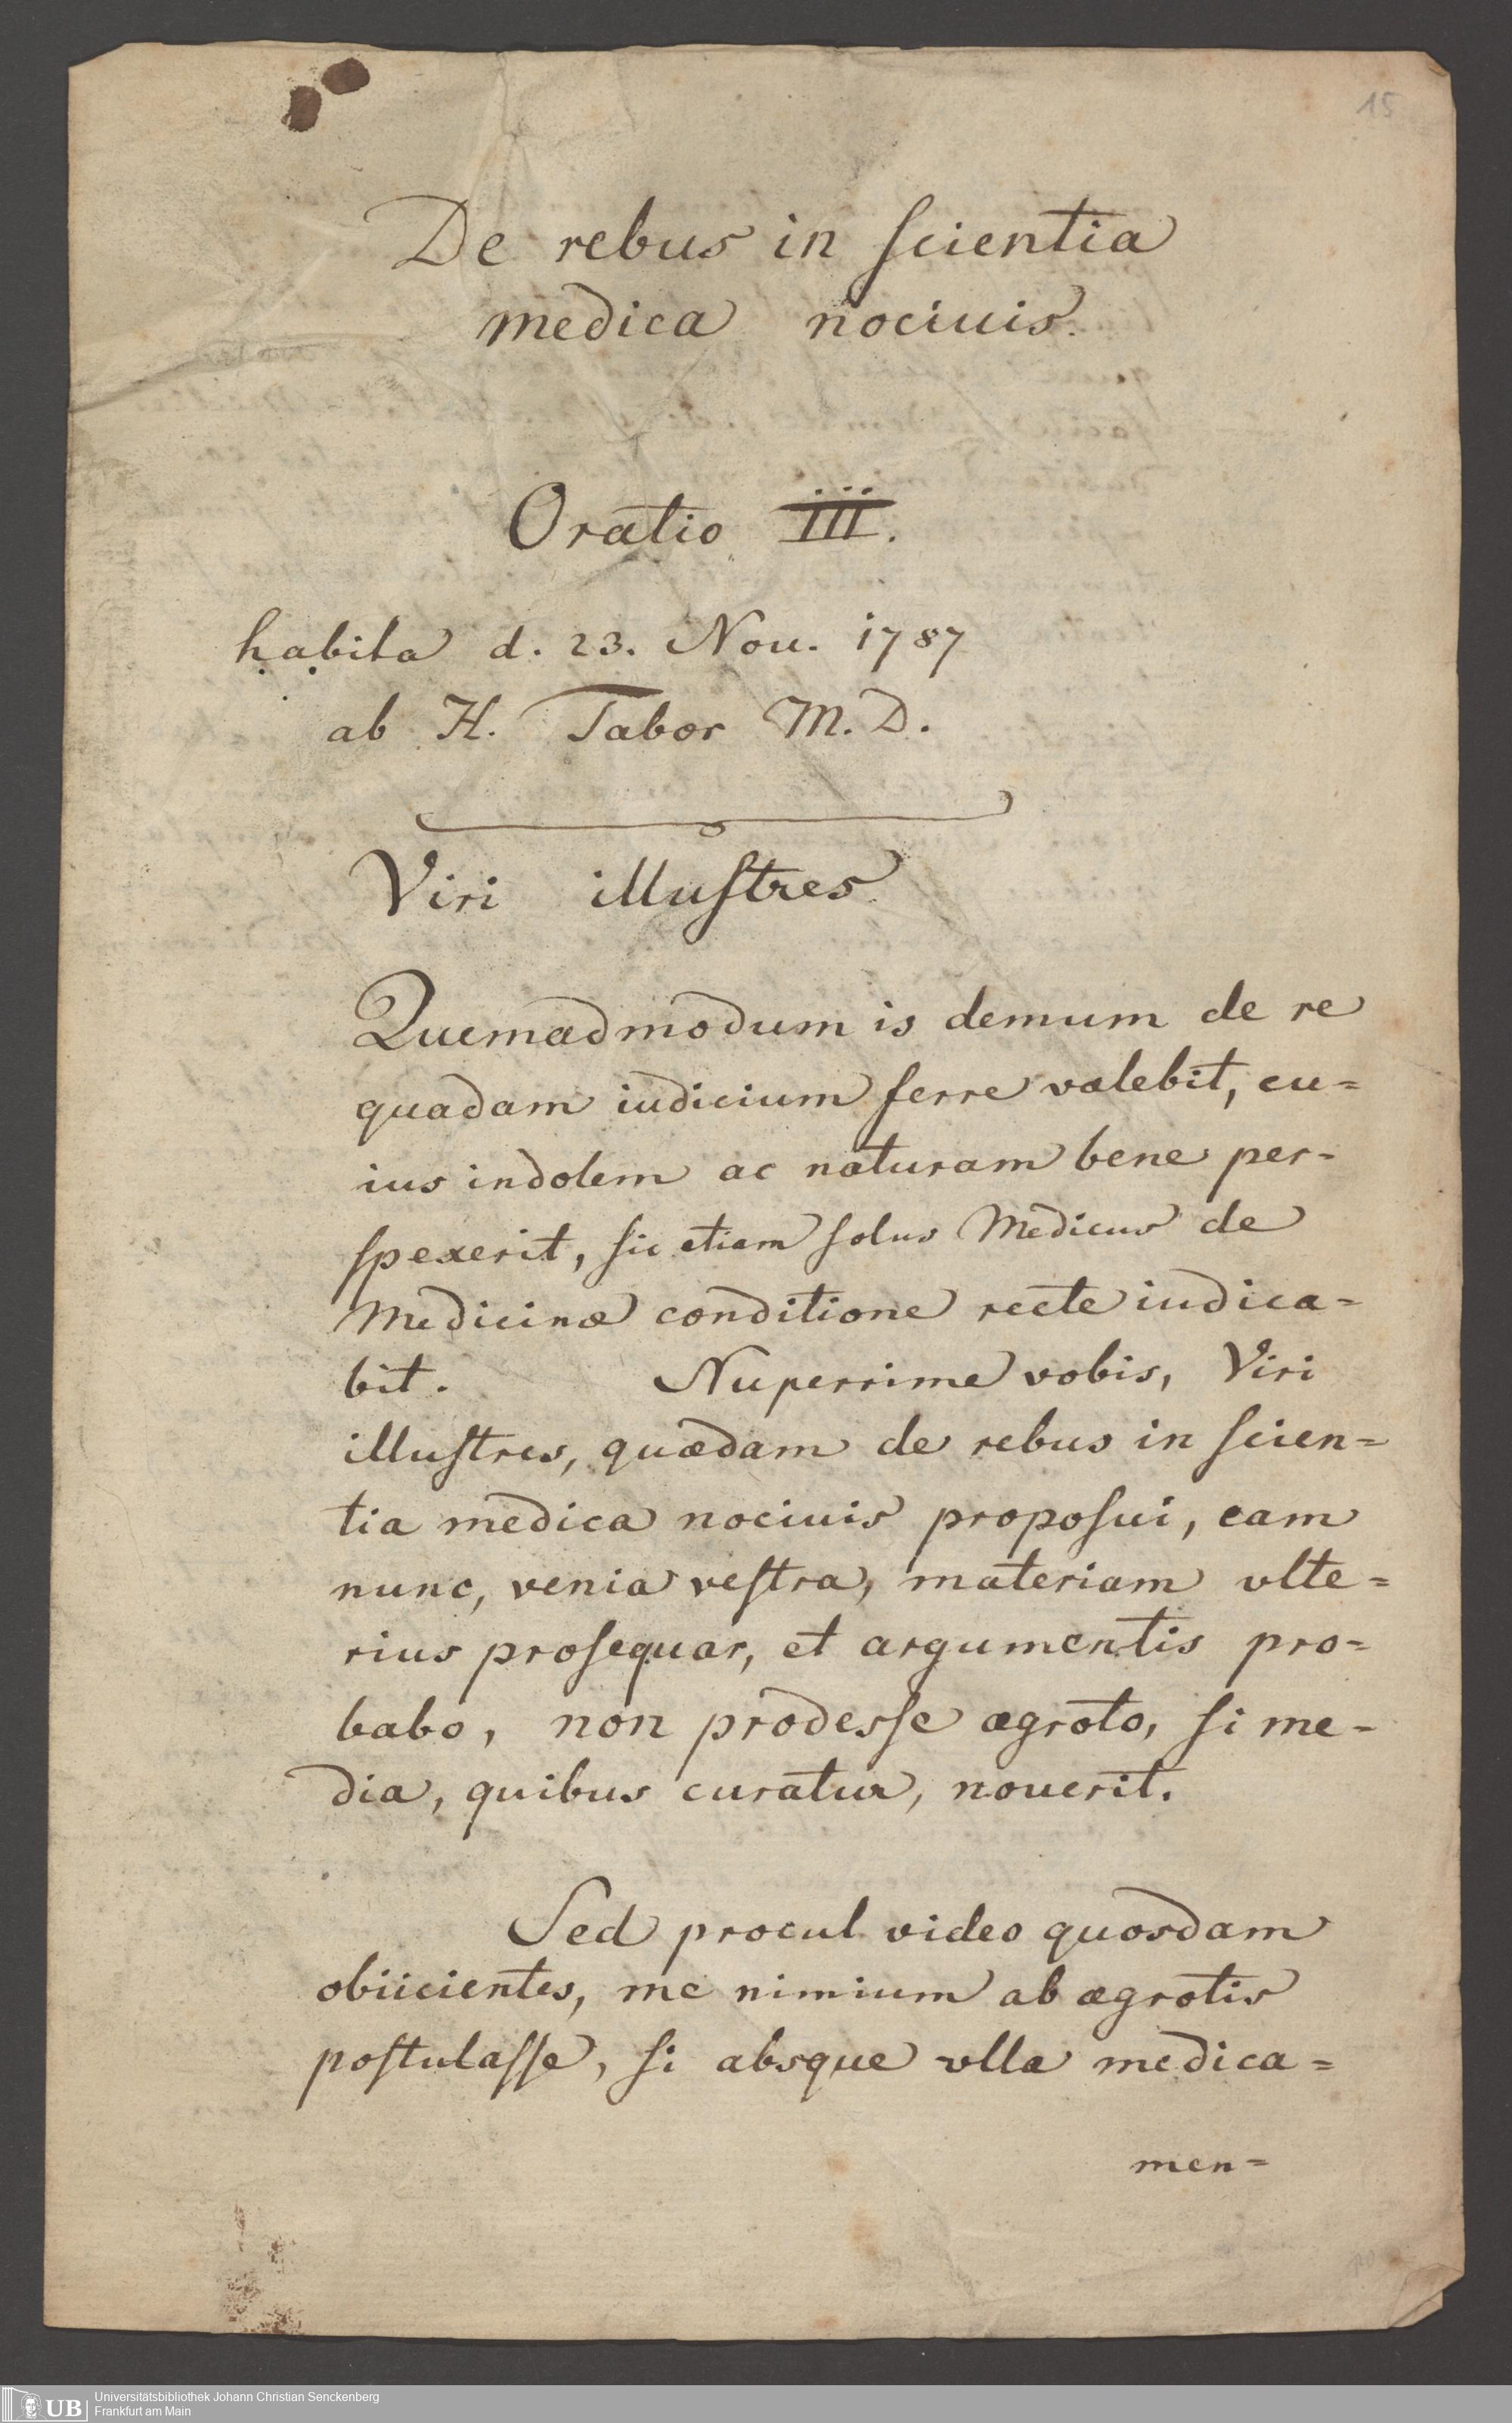 15
De rebus in ſcientia
medica nociuis.
Oratio III.
habita d. 23. Nou. 1787
ab H. Tabor M. D.
Viri illuſtres.
Quemadmodum is demum de re
quadam iudicium ferre valebit, cu=
ius indolem ac naturam bene per-
ſpexerit, ſic etiam ſolus Medicus de
Medicinæ conditione recte iudica=
bit. Nuperrime vobis, Viri
illuſtres, quædam de rebus in ſcien=
tia medica nociuis propoſui, eam
nunc, venia veſtra, materiam vlte=
rius proſequar, et argumentis pro-
babo, non prodesſe ægroto, ſi me-
dia, quibus curatur, nouerit.
Sed procul video quosdam
obiicientes, me nimium ab ægrotis
poſtulaſſe, ſi absque vlla medica=
men=
Universitätsbibliothek Johann Christian Senckenberg
Frankfurt am Main
UB